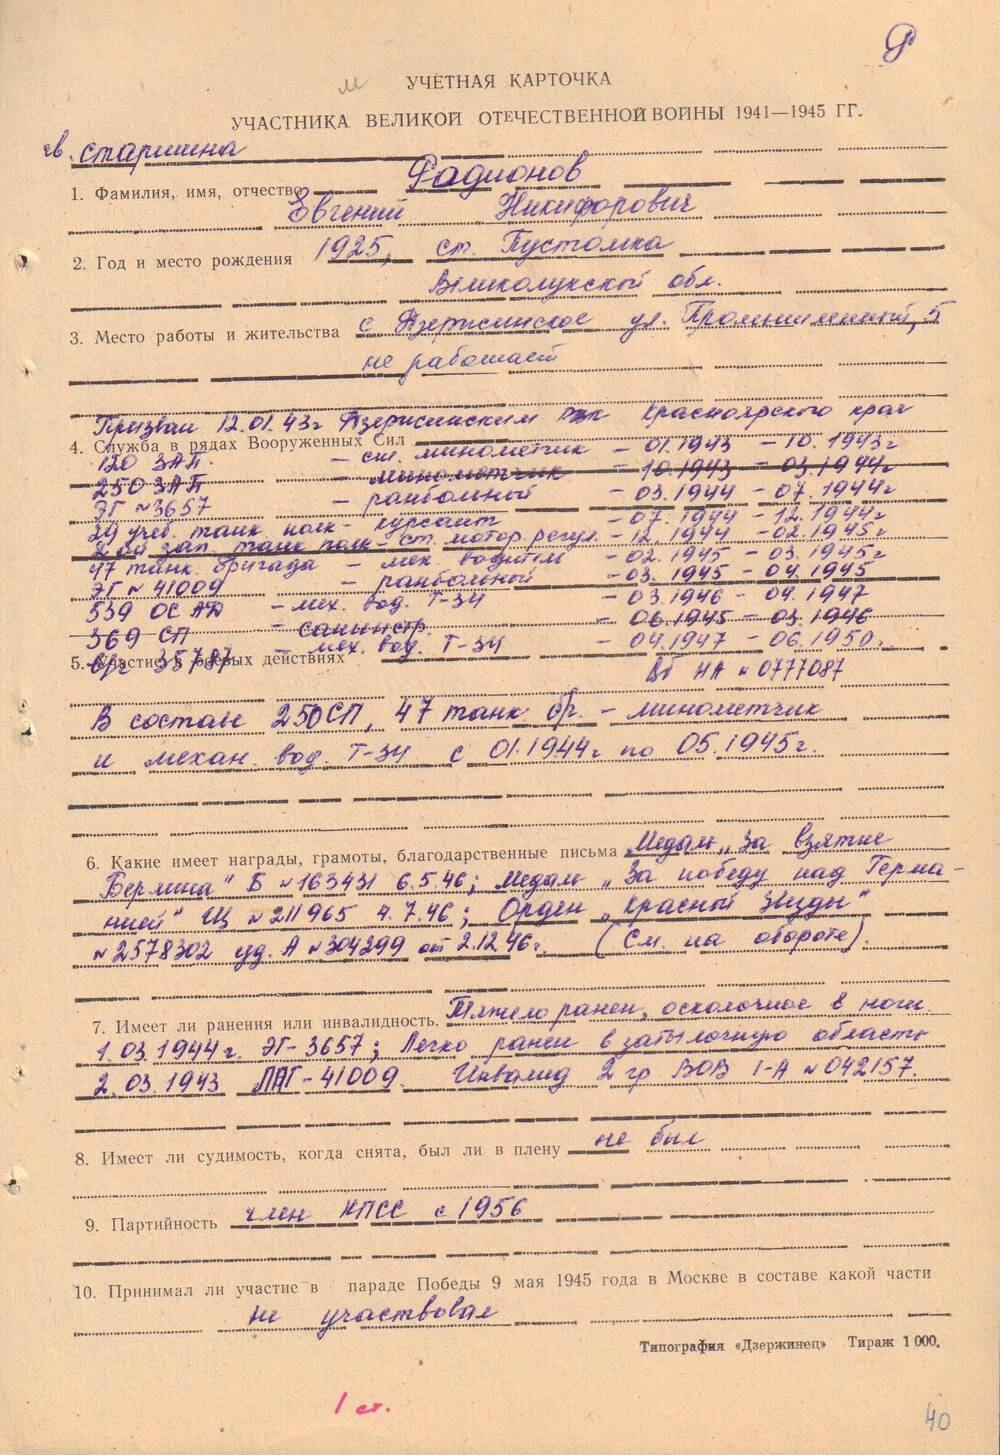 Р
м
УЧЕТНАЯ КАРТОЧКА
УЧАСТНИКА ВЕЛИКОЙ ОТЕЧЕСТВЕННОЙ ВОЙНЫ 1941—1945 ГГ.
гв. старшина
1. Фамилия, имя, отчество Радионов
Евгений Никифорович
2. Год и место рождения 1925, ст. Пустошка
Великолукской обл.
3. Место работы и жительства с Дзержинское ул. 5
не работает
Призван 12.01.43г Дзержинским Красноярского края
4. Служба в рядах Вооруженных Сил
120 ЗАП – минометчик – 01.1943 – 10.1943г
250 ЗАП – минометчик – 10.1943 – 03.1944г
ЭГ №3657 – ранбольный – 03.1944 – 07.1944г
29 учеб. танк полк – курсант – 07.1944 – 12.1944г
зап. танк полк – ст. мотор. регул. – 12.1944 – 02.1945г
47 танк. бригада – мех водитель – 02.1945 – 03.1945г
ЭГ № 41009 – ранбольный – 03.1945 – 04.1945
539 ОС – мех. вод. Т-34 – 03.1946 – 04.1947
369 СП – санинстр. – 06.1945 – 03.1946
в/ч 35787 – мех. вод. Т-34 – 04.1947 – 06.1950г.
5. Участие в боевых действиях
ВБ НА № 0777087
В составе 250 СП, 47 танк бр. – минометчик
и механ. вод. Т-34 с 01.1944г по 05.1945г.
6. Какие имеет награды, грамоты, благодарственные письма Медаль „За взятие
Берлина" Б №163431 6.5.46; Медаль „За победу над Герма-
нией" №211965 4.7.46; Орден „Красной Звезды"
№2578302 уд. А №304299 от 2.12.46г. (См. на обороте).
7. Имеет ли ранения или инвалидность. Тяжело ранен, осколочное в ноги.
1.03.1944г. ЭГ-3657; Легко ранен в затылочную область
2.03.1943 41009. Инвалид 2 гр ВОВ I-А №042157.
8. Имеет ли судимость, когда снята, был ли в плену не был
9. Партийность член КПСС с 1956
10. Принимал ли участие в параде Победы 9 мая 1945 года в Москве в составе какой части
не участвовал
Типография «Дзержинец» Тираж 1 000.
1 ст.
40